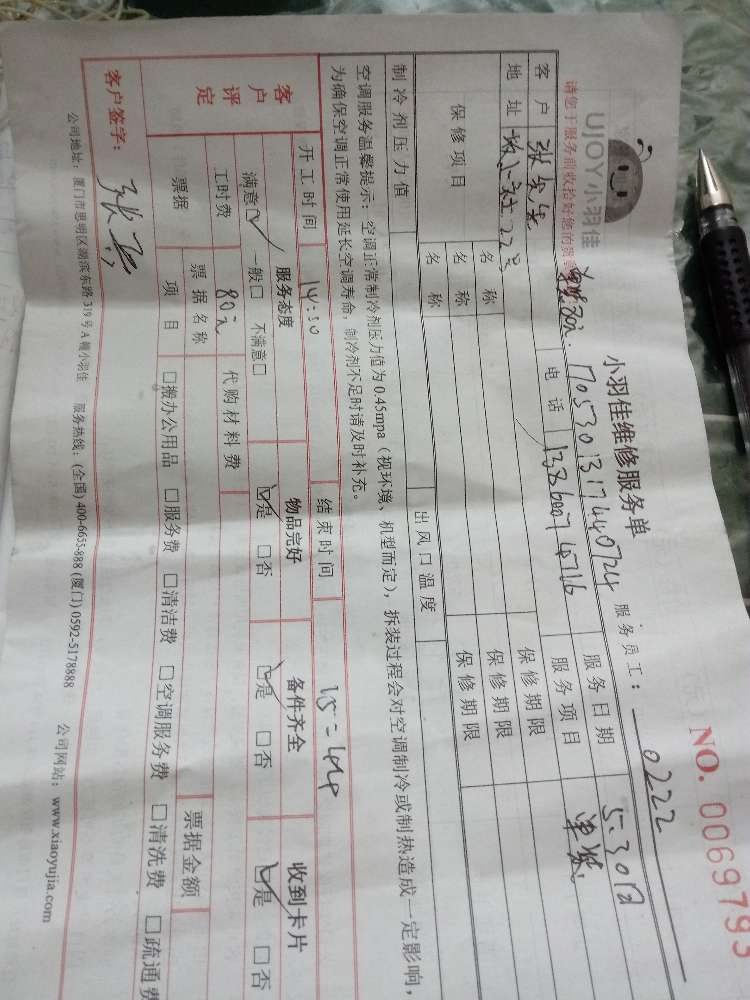 UJOY小羽佳
小羽佳维修服务单
NO. 0069793
请您于服务前收拾好您的贵重
1705301317440724
服务员工: 0222
客户 张先生 电话 服务日期 5.30日
地址 22号 服务项目 单装
保修项目 名称 保修期限
名称 保修期限
名称 保修期限
制冷剂压力值 出风口温度
空调服务温馨提示:空调正常制冷剂压力值为0.45mpa(视环境、机型而定),拆装过程会对空调制冷或制热造成一定影响,
为确保空调正常使用延长空调寿命,制冷剂不足时请及时补充。
开工时间 14:30 结束时间 15:44
客户评定 服务态度 物品完好 备件齐全 收到卡片
满意☑ 一般□ 不满意□ ☑是 □否 ☑是 □否 ☑是 □否
工时费 80元 代购材料费
票据 票据名称 票据金额
项目 □搬办公用品 □服务费 □清洁费 □空调服务费 □清洗费 □疏通费
客户签字:
公司地址:厦门市思明区湖滨东路319号A幢小羽佳 服务热线:(全国)400-6655-888 (厦门)0592-5178888 公司网站:www.xiaoyujia.com